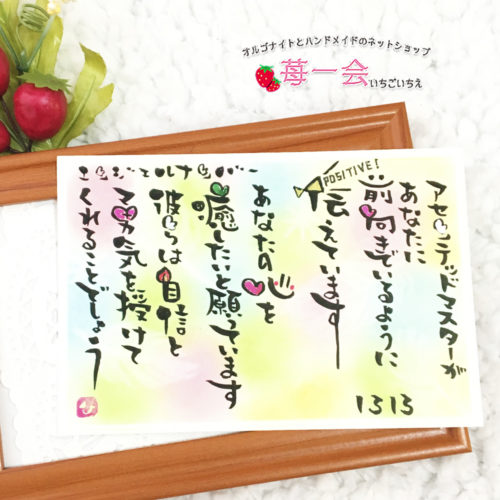 オルゴナイトとハンドメイドのネットショップ
苺一会いちごいちえ
エンジェルナンバー
1313
アセンデッドマスターが
あなたに
前向きでいるように
POSITIVE!
伝えています
あなたの心を
癒したいと願っています
彼らは自信と
勇気を授けて
くれることでしょう